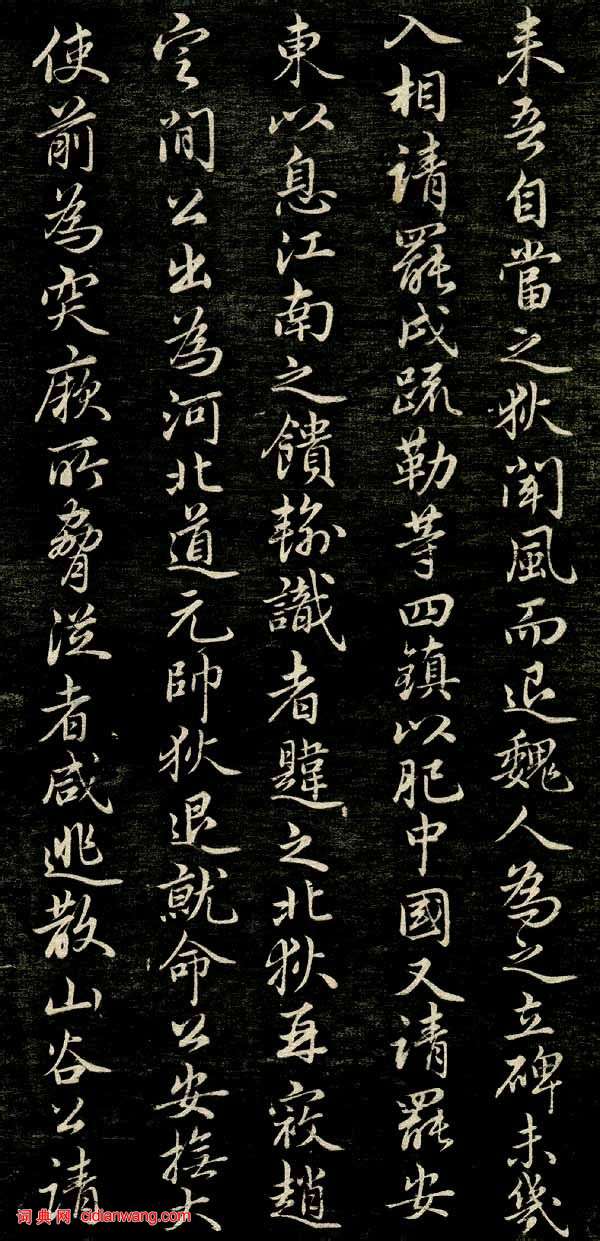 来吾自當之狄聞風而退魏人為之立碑未幾
入相請罷戍疏勒等四鎮以肥中國又請罷安
東以息江南之饋輸識者韙之北狄再寇趙
定間公出為河北道元帥狄退就命公安撫大
使前為突厥所脅從者咸逃散山谷公請
词典网 cidianwang.com